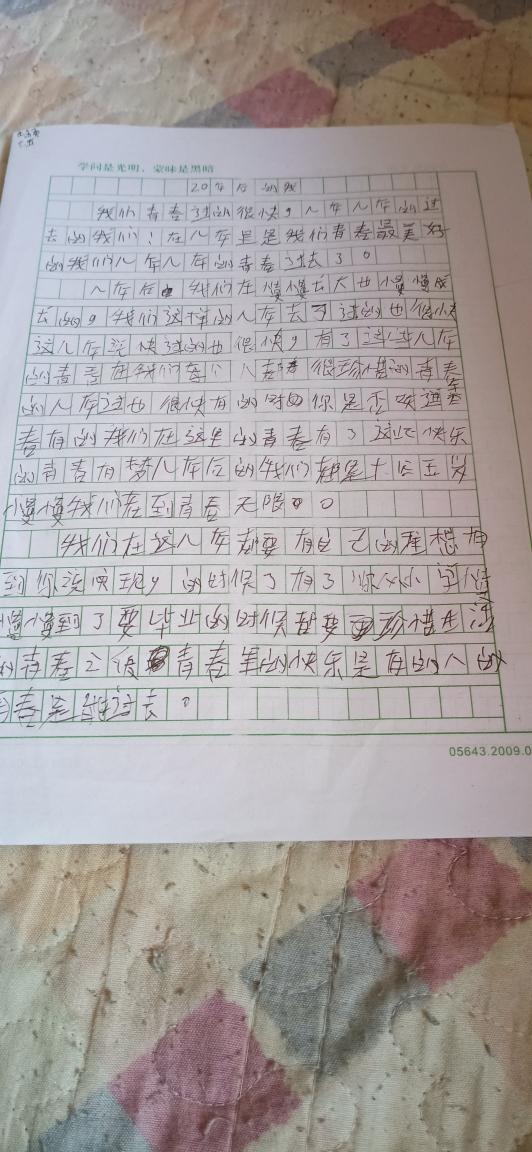 学问是光明，蒙昧是黑暗
20年后的我
我们青春过的很快，几年几年的过
去的我们！在几年里是我们青春最美好
的我们几年几年的青春过去了。
几年后 我们在慢慢长大也慢慢成
去的，我们这样的几年去了过的也很快
这几年说快过的也很快，有了这些几年
的青春在我们每个人都 很珍惜的青春
的几年过也很快有的时 你是否 青
春有的我们在这里的青春有了这 快乐
的青春有梦几年后的我们都是十 五岁
慢慢我们在到青春无限。。
我们在这几年都要有自己的理想 
到你该 现，的时候了有了你从小学 
慢慢到了要毕业的时候 要 珍惜生活
的青春之后 青春里的快乐是有的人的
青春是 过去。
05643.2009.0